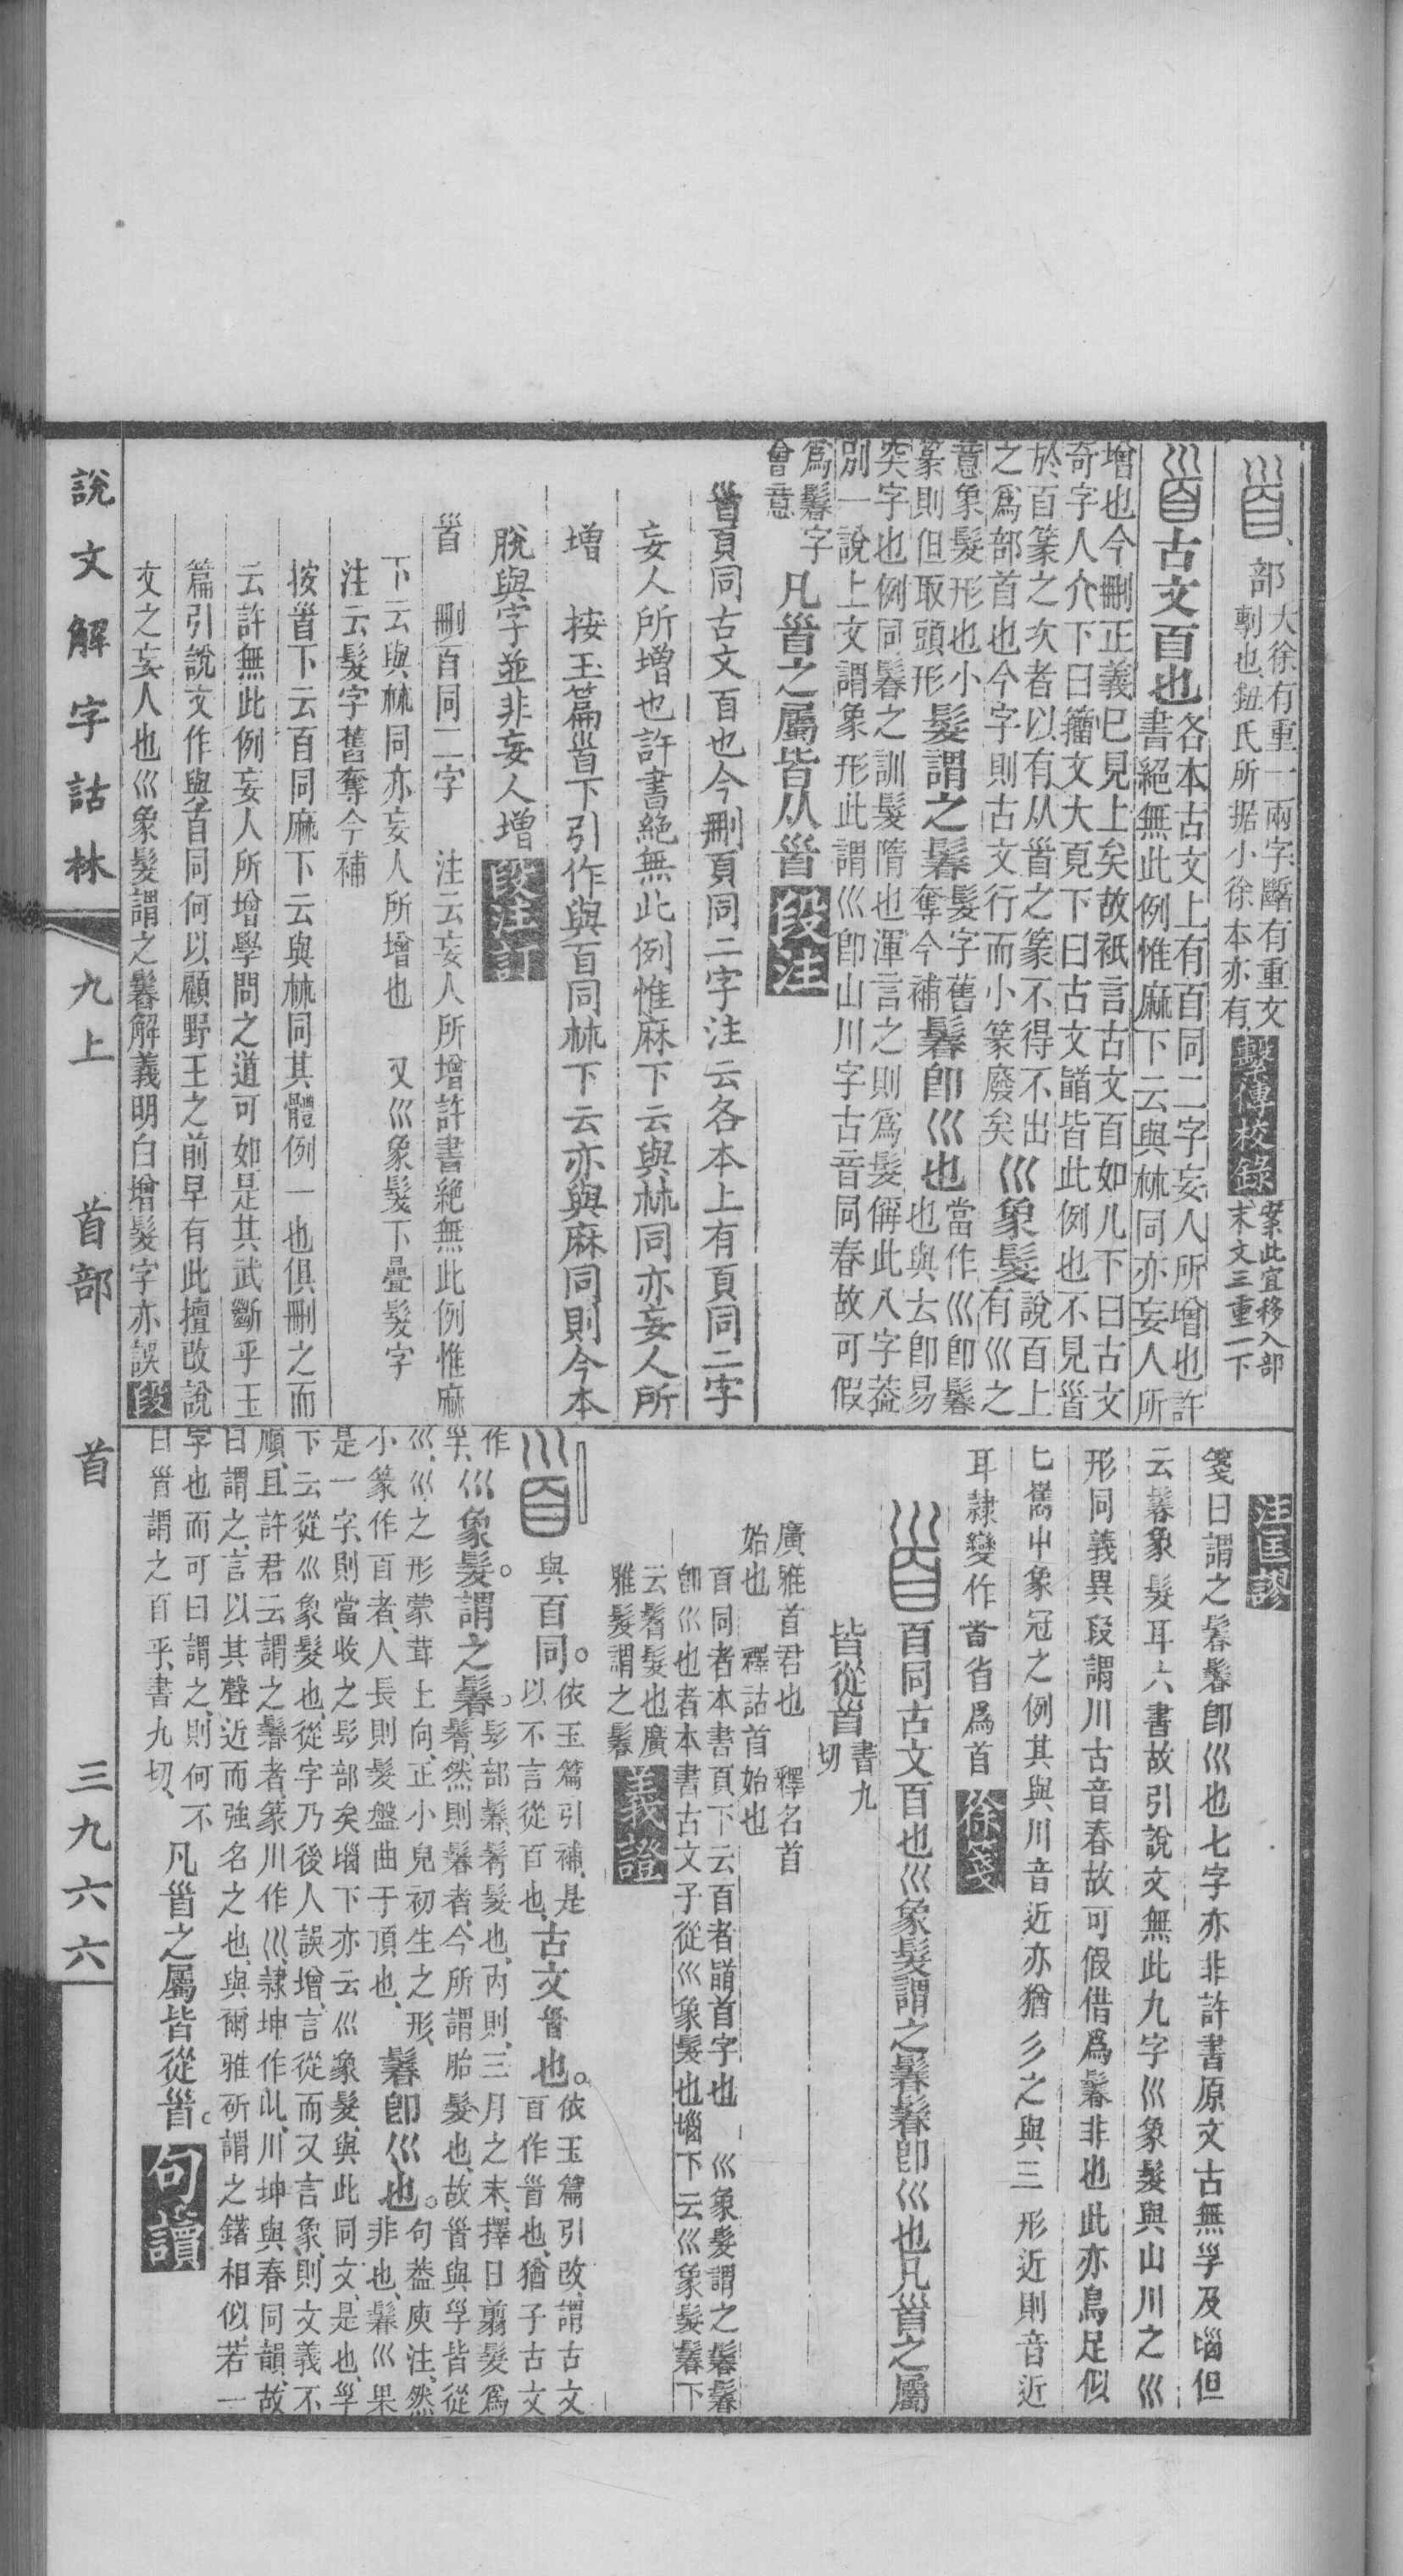 𩠐部大徐有重一兩字斷有重文
劀也鈕氏所据小徐本亦有
繫傳校錄
案此宜移入部
末文三重一下
𩠐古文𦣻也各本古文上有𦣻同二字妄人所增也許
書絕無此例惟麻下云與𣏟同亦妄人所
增也今刪正義巳見上矣故祇言古文𦣻如儿下曰古文
奇字人介下曰籀文大𩑋下曰古文䭫皆此例也不見𩠐
於𦣻篆之次者以有从𩠐之篆不得不出
之爲部首也今字則古文行而小篆廢矣
巛象髮
說𦣻上
有巛之
意象髮形也小
篆則但取頭形
髮謂之鬊
髮字舊
奪今補
鬊卽巛也
當作巛卽鬊
也與𠫓卽易
突字也例同鬊之訓髮隋也渾言之則爲髮偁此八字葢
別一說上文謂象形此謂巛卽山川字古音同春故可假
爲鬊字
會意
凡𩠐之屬皆从𩠐
段注
𩠐頁同古文𦣻也今刪頁同二字注云各本上有頁同二字
妄人所增也許書絕無此例惟麻下云與𣏟同亦妄人所
增　按玉篇𩠐下引作與𦣻同𣏟下云亦與麻同則今本
脫與字並非妄人增
段注訂
𩠐　刪𦣻同二字　注云妄人所增許書絕無此例惟麻
下云與𣏟同亦妄人所增也　又巛象髮下疊髮字
注云髮字舊奪今補
按𩠐下云𦣻同麻下云與𣏟同其體例一也俱刪之而
云許無此例妄人所增學問之道可如是其武斷乎玉
篇引說文作與𦣻同何以顧野王之前早有此擅改說
文之妄人也巛象髮謂之鬊解義明白增髮字亦誤
段
注匡謬
箋曰謂之鬊鬊卽巛也七字亦非許書原文古無𡥆及𡿺但
云鬊象髮耳六書故引說文無此九字巛象髮與山川之巛
形同義異段謂川古音春故可假借爲鬊非也此亦鳥足似
匕雟屮象冠之例其與川音近亦猶彡之與三形近則音近
耳隸變作𩠐省爲首
徐箋
𩠐𦣻同古文𦣻也巛象髮謂之鬊鬊卽巛也凡𩠐之屬
皆從𩠐
書九
切
廣雅首君也　釋名首
始也　釋詁首始也
𦣻同者本書頁下云𦣻者䭫首字也　巛象髮謂之鬊鬊
卽巛也者本書古文子從巛象髮也𡿺下云巛象髮鬊下
云鬌髮也廣
雅髮謂之鬊
義證
𩠐與𦣻同。
依玉篇引補、是
以不言從𦣻也、
古文𩠐也。
依玉篇引改、謂古文
𦣻作𩠐也、猶子古文
作
𡥆、
巛象髮。謂之鬊。
髟部鬊、鬌髮也、內則、三月之末、擇日翦髮爲
鬌、然則鬊者、今所謂胎髮也、故𩠐與𡥆皆從
巛、巛之形蒙茸上向、正小兒初生之形、
小篆作𦣻者、人長則髮盤曲于頂也、
鬊卽巛也。
句葢庾注、然
非也、鬊巛果
是一字、則當收之髟部矣、𡿺下亦云巛象髮、與此同文、是也、𡥆
下云從巛象髮也、從字乃後人誤增、言從而又言象、則文義不
順、且許君云謂之鬊者、篆川作巛、隸坤作巛、川坤與春同韻、故
曰謂之、言以其聲近而強名之也、與爾雅斫謂之鐯相似、若一
字也而可曰謂之、則何不
曰𩠐謂之𦣻乎、書九切、
凡𩠐之屬皆從𩠐。
句讀
說文解字詁林　九上　首部　首　三九六六